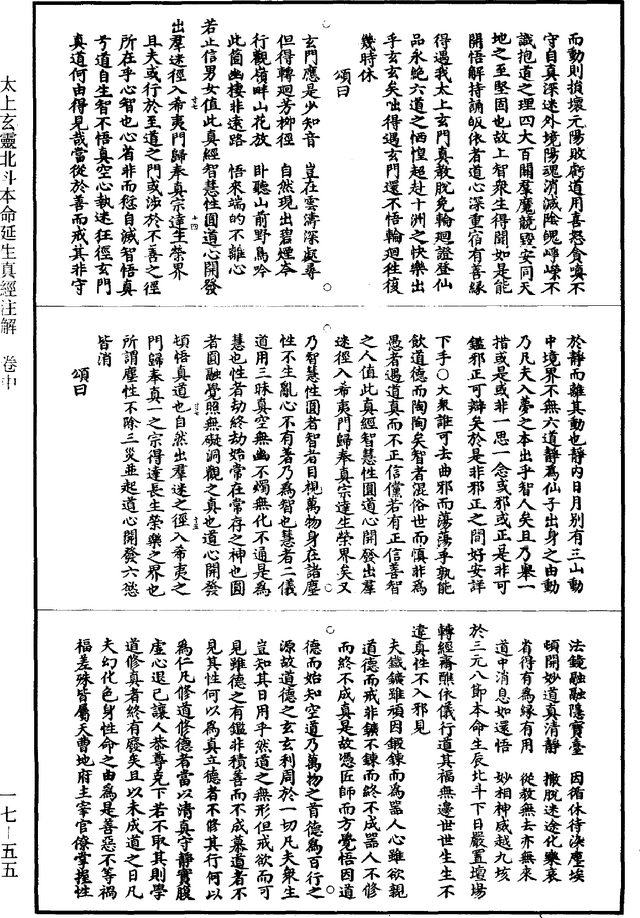 而動則損壞元陽敗虧道用喜怒食嗔不
守自真深迷外境陽魂消滅陰魄崢嶸不
識抱道之理四大百關羣魔競竅安同天
地之至堅固也故上智衆生得聞如是能
開悟解持誦皈依者道心深重宿有善緣
得遇我太上玄門真教脫免輪迴證登仙
品永絶六道之恓惶超赴十洲之快樂出
乎玄玄矣咄得遇玄門還不悟輪迴徃復
幾時休
頌曰
玄門應是少知音　豈在雲濤深處尋
但得轉迴芳柳徑　自然現出碧煙岑
行觀嶺畔山花放　卧聽山前野鳥吟
此箇幽棲非遠路　悟來端的不離心
若止信男女值此真經智慧性圓道心開發
出羣迷徑入希夷門歸奉真宗達生榮界
且夫或行於至道之門或涉於不善之徑
所在乎心智也心若非而愆自滅智悟真
兮道自生智不悟真空心執迷狂徑玄門
真道何由得見哉當從於善而戒其非守
於靜而離其動也靜內日月別有三山動
中境界不無六道靜爲仙子出身之由動
乃凡夫入夢之本出乎智人矣且乃舉一
措或是或非一思一念或邪或正是非可
鑑邪正可辯矣於是非邪正之間好安詳
下手○大衆誰可去曲邪而蕩蕩乎孰能
飲道德而陶陶矣智者混俗世而慎非爲
愚者遇道真而不正信儻若有正信善智
之人值此真經智慧性圓道心開發出羣
迷徑入希夷門歸奉真宗達生榮界矣又
乃智慧性圓者智者目視萬物身在諸塵
性不生亂心不有著乃爲智也慧者二儀
道用三昧真空無幽不燭無化不通是爲
慧也性者劫終劫始常在常存之神也圓
者圓融覺照無礙洞觀之真也道心開發
頓悟真道也自然出羣迷之徑入希夷之
門歸奉真一之宗得達長生榮樂之界也
所謂塵性不除三災並起道心開發六慾
皆消
頌曰
法鏡融融隱寶臺　因循休待染塵埃
頓開妙道真清靜　撒脫迷途化樂哀
省得有爲緣有用　從教無去亦無來
道中消息如還悟　妙相神威越九垓
於三元八節本命生辰北斗下日嚴置壇場
轉經齋醮依儀行道其福無邊世世生生不
違真性不入邪見
夫鐵鑛雖頑因鍛鍊而爲器人心雖欲親
道德而戒非鑛不鍊而終不成器人不修
而終不成真是故憑匠師而方覺悟因道
德而始知空道乃萬物之首德爲百行之
源故道德之玄玄利周於一切凡夫衆生
豈知其日用乎然道之無形但戒欲而可
見雖德之有鑑非積善而不成募道者不
見其性何以爲真立德者不修其行何以
爲仁凡修道修德者當以清真守靜實腹
虚心退己讓人恭尊克下若不取其則學
道修真者終有發矣且以未成道之日凡
夫幻化色身性命之由爲是善惡不等禍
福差殊皆屬天曹地府主宰官僚掌握性
太上玄靈北斗本命延生真經注解　卷中
一七—五五